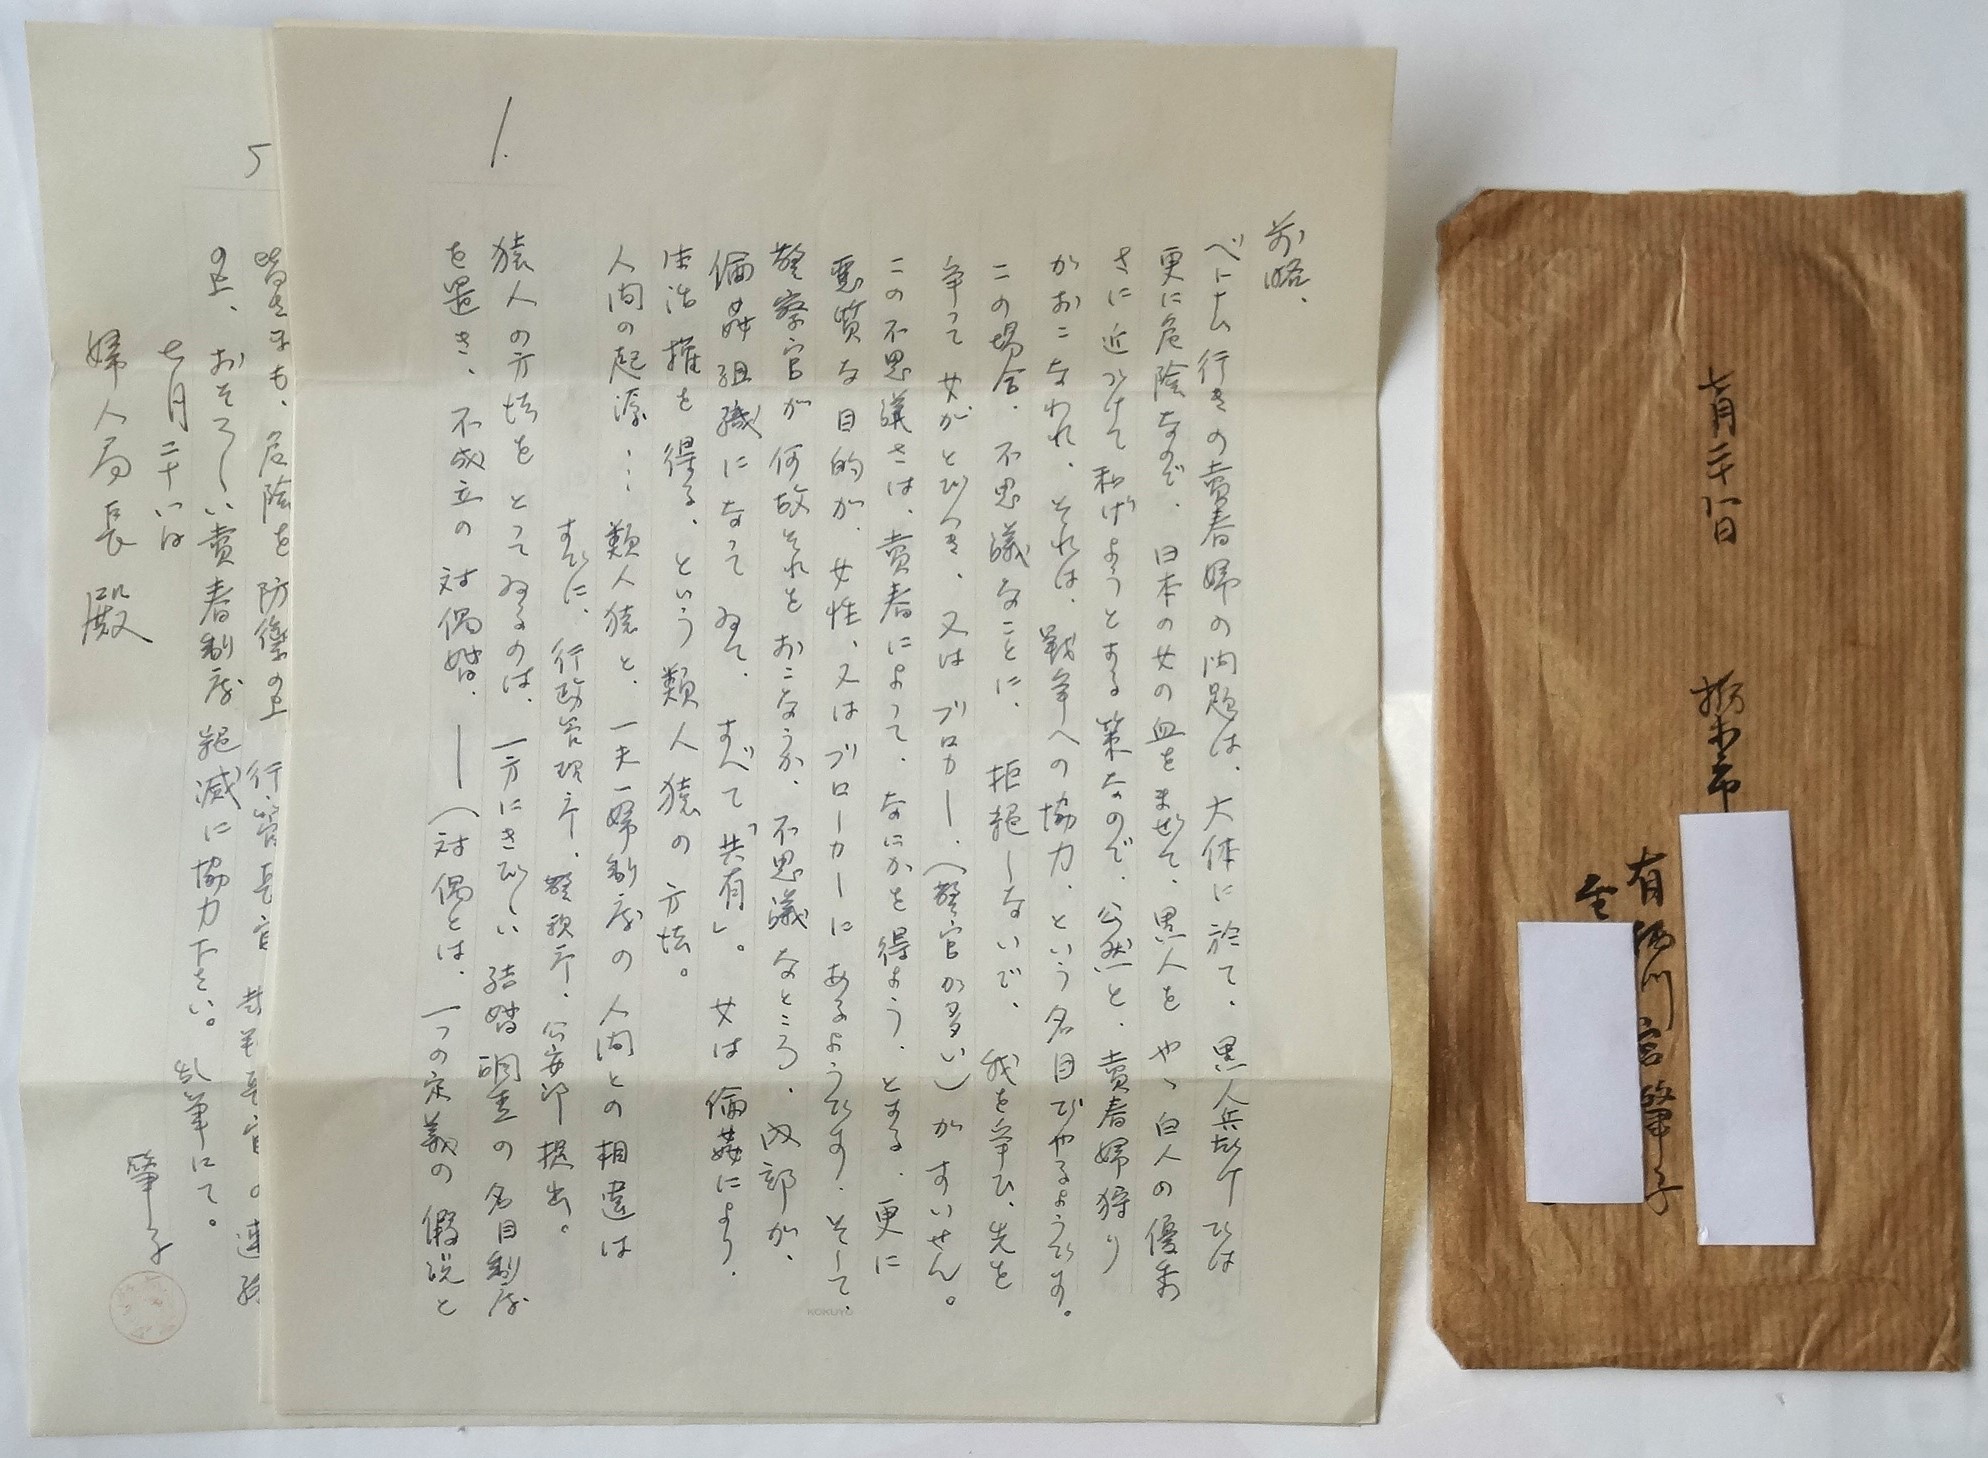 1.
前略、
ベトナム行きの賣春婦の問題は、大体に於て、黒人兵だけでは
更に危険なので、日本の女の血をませて、黒人をやゝ白人の優秀
さに近づけて和げようとする策なので、公然と、賣春婦狩り
がおこなわれ、それは、戦争への協力、という名目でやるようです。
この場合、不思議なことに、拒絶しないで、我を争ひ、先を
争って女がとびつき、又はブロカー、(警官が多い)がすいせん。
この不思議さは、賣春によって、なにかを得よう、とする、更に
悪質な目的が、女性、又はブローカーにあるようです。そして、
警察官が何故それをおこなうか、不思議なところ、内部が、
倫姦組織になってゐて、すべて「共有」。女は倫姦により、
生活権を得る、という類人猿の方法。
人間の起源…類人猿と、一夫一婦制度の人間との相違は
すでに、行政管理庁、警視庁、公安部提出。
猿人の方法をとってゐるのは、一方にきびしい結婚調査の名目制度
を置き、不成立の対偶婚、―(対偶とは、一つの定義の假説と
5
皆さまも、危険を防禦の上、行管長官
の上、おそろしい賣春制度絶滅に協力下さい。乱筆にて。
七月二十八日
肇子
婦人局長殿
KOKUYO
七月二十八日
栃木市
有栖川宮肇子